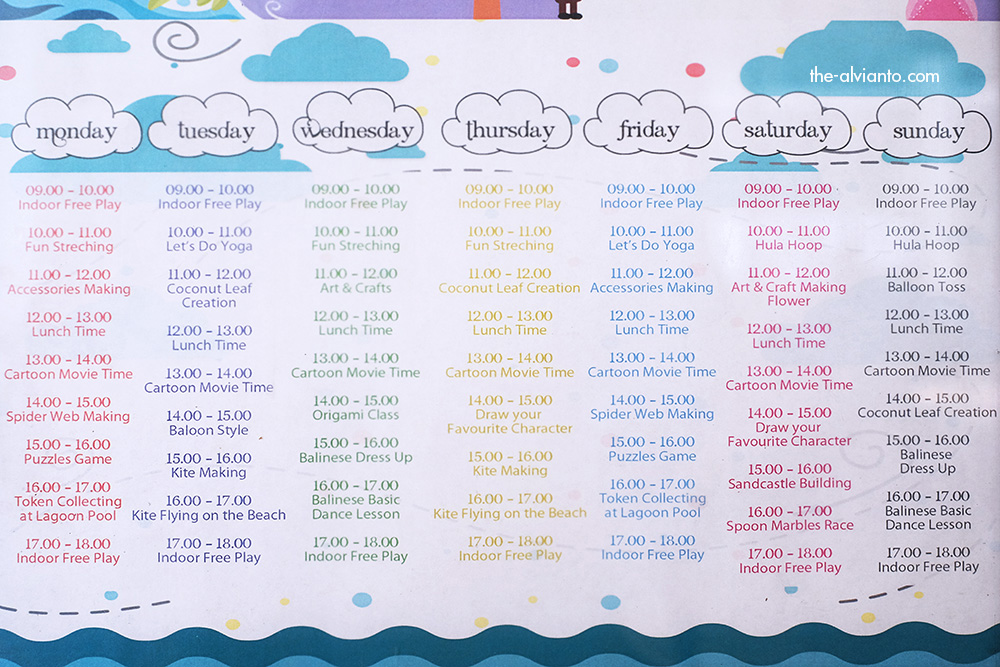 the-alvianto.com
monday
09.00 - 10.00
Indoor Free Play
10.00 - 11.00
Fun Streching
11.00 - 12.00
Accessories Making
12.00 - 13.00
Lunch Time
13.00 - 14.00
Cartoon Movie Time
14.00 - 15.00
Spider Web Making
15.00 - 16.00
Puzzles Game
16.00 - 17.00
Token Collecting
at Lagoon Pool
17.00 - 18.00
Indoor Free Play
tuesday
09.00 - 10.00
Indoor Free Play
10.00 - 11.00
Let's Do Yoga
11.00 - 12.00
Coconut Leaf
Creation
12.00 - 13.00
Lunch Time
13.00 - 14.00
Cartoon Movie Time
14.00 - 15.00
Baloon Style
15.00 - 16.00
Kite Making
16.00 - 17.00
Kite Flying on the Beach
17.00 - 18.00
Indoor Free Play
wednesday
09.00 - 10.00
Indoor Free Play
10.00 - 11.00
Fun Streching
11.00 - 12.00
Art & Crafts
12.00 - 13.00
Lunch Time
13.00 - 14.00
Cartoon Movie Time
14.00 - 15.00
Origami Class
15.00 - 16.00
Balinese Dress Up
16.00 - 17.00
Balinese Basic
Dance Lesson
17.00 - 18.00
Indoor Free Play
thursday
09.00 - 10.00
Indoor Free Play
10.00 - 11.00
Fun Streching
11.00 - 12.00
Coconut Leaf Creation
12.00 - 13.00
Lunch Time
13.00 - 14.00
Cartoon Movie Time
14.00 - 15.00
Draw your
Favourite Character
15.00 - 16.00
Kite Making
16.00 - 17.00
Kite Flying on the Beach
17.00 - 18.00
Indoor Free Play
friday
09.00 - 10.00
Indoor Free Play
10.00 - 11.00
Let's Do Yoga
11.00 - 12.00
Accessories Making
12.00 - 13.00
Lunch Time
13.00 - 14.00
Cartoon Movie Time
14.00 - 15.00
Spider Web Making
15.00 - 16.00
Puzzles Game
16.00 - 17.00
Token Collecting
at Lagoon Pool
17.00 - 18.00
Indoor Free Play
saturday
09.00 - 10.00
Indoor Free Play
10.00 - 11.00
Hula Hoop
11.00 - 12.00
Art & Craft Making
Flower
12.00 - 13.00
Lunch Time
13.00 - 14.00
Cartoon Movie Time
14.00 - 15.00
Draw your
Favourite Character
15.00 - 16.00
Sandcastle Building
16.00 - 17.00
Spoon Marbles Race
17.00 - 18.00
Indoor Free Play
sunday
09.00 - 10.00
Indoor Free Play
10.00 - 11.00
Hula Hoop
11.00 - 12.00
Balloon Toss
12.00 - 13.00
Lunch Time
13.00 - 14.00
Cartoon Movie Time
14.00 - 15.00
Coconut Leaf Creation
15.00 - 16.00
Balinese
Dress Up
16.00 - 17.00
Balinese Basic
Dance Lesson
17.00 - 18.00
Indoor Free Play